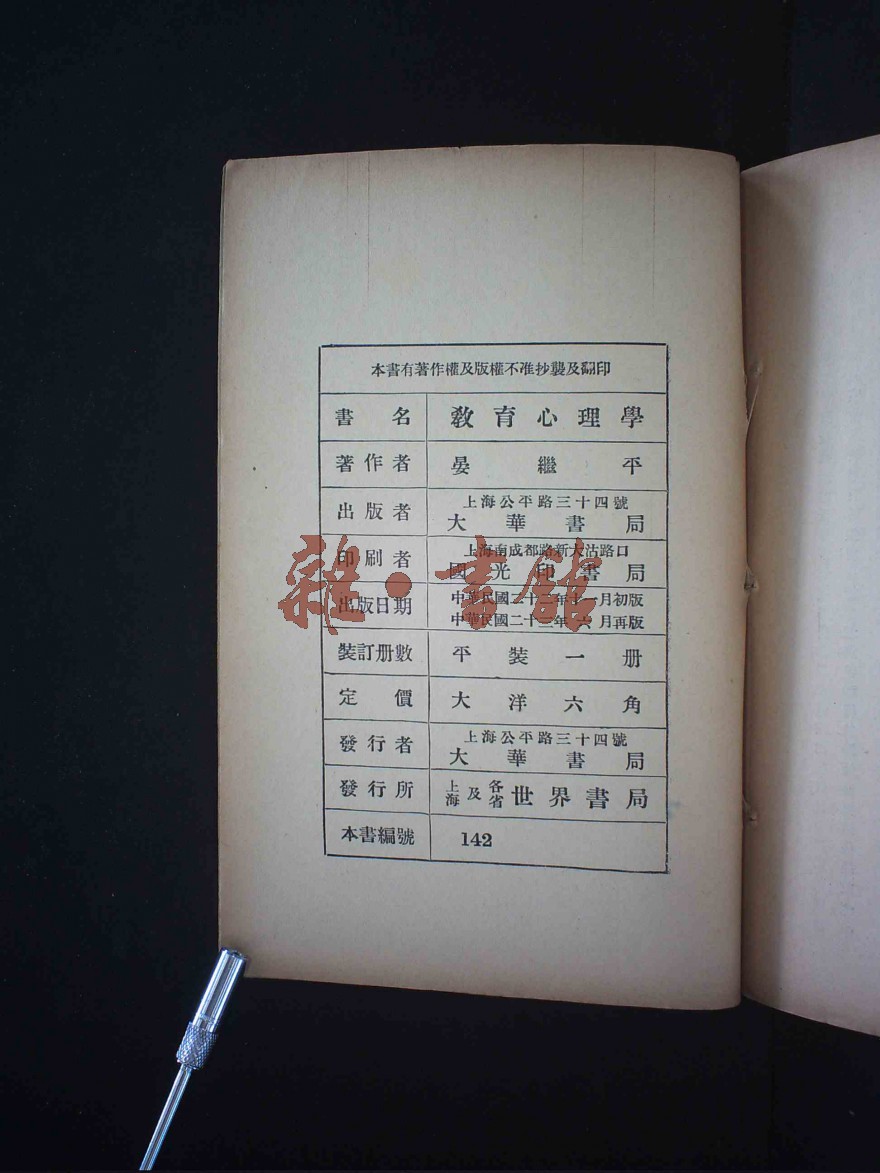 本書有著作權及版權不准抄襲及翻印
書名 教育心理學
著作者 晏繼平
出版者 上海公平路三十四號
大華書局
印刷者 上海南成都路新大沽路口
國光印書局
出版日期 中華民國二十二年十一月初版
中華民國二十三年六月再版
裝訂册數 平裝一册
定價 大洋六角
發行者 上海公平路三十四號
大華書局
發行所 上海及各省世界書局
本書編號 142
雜·書館